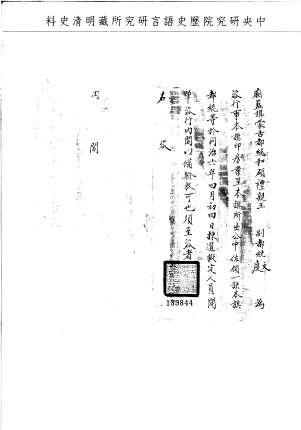 中央研究院歷史語言研究所藏明清史料
廂藍旗蒙古都統和碩禮親王 副都統 為
咨行事本旗印房案呈本旗所出公中佐領一缺本旗
都統等於同治六年四月初四日揀選擬定人員開
單咨行內閣以備翰表可也須至咨者
右咨
內閣
139844